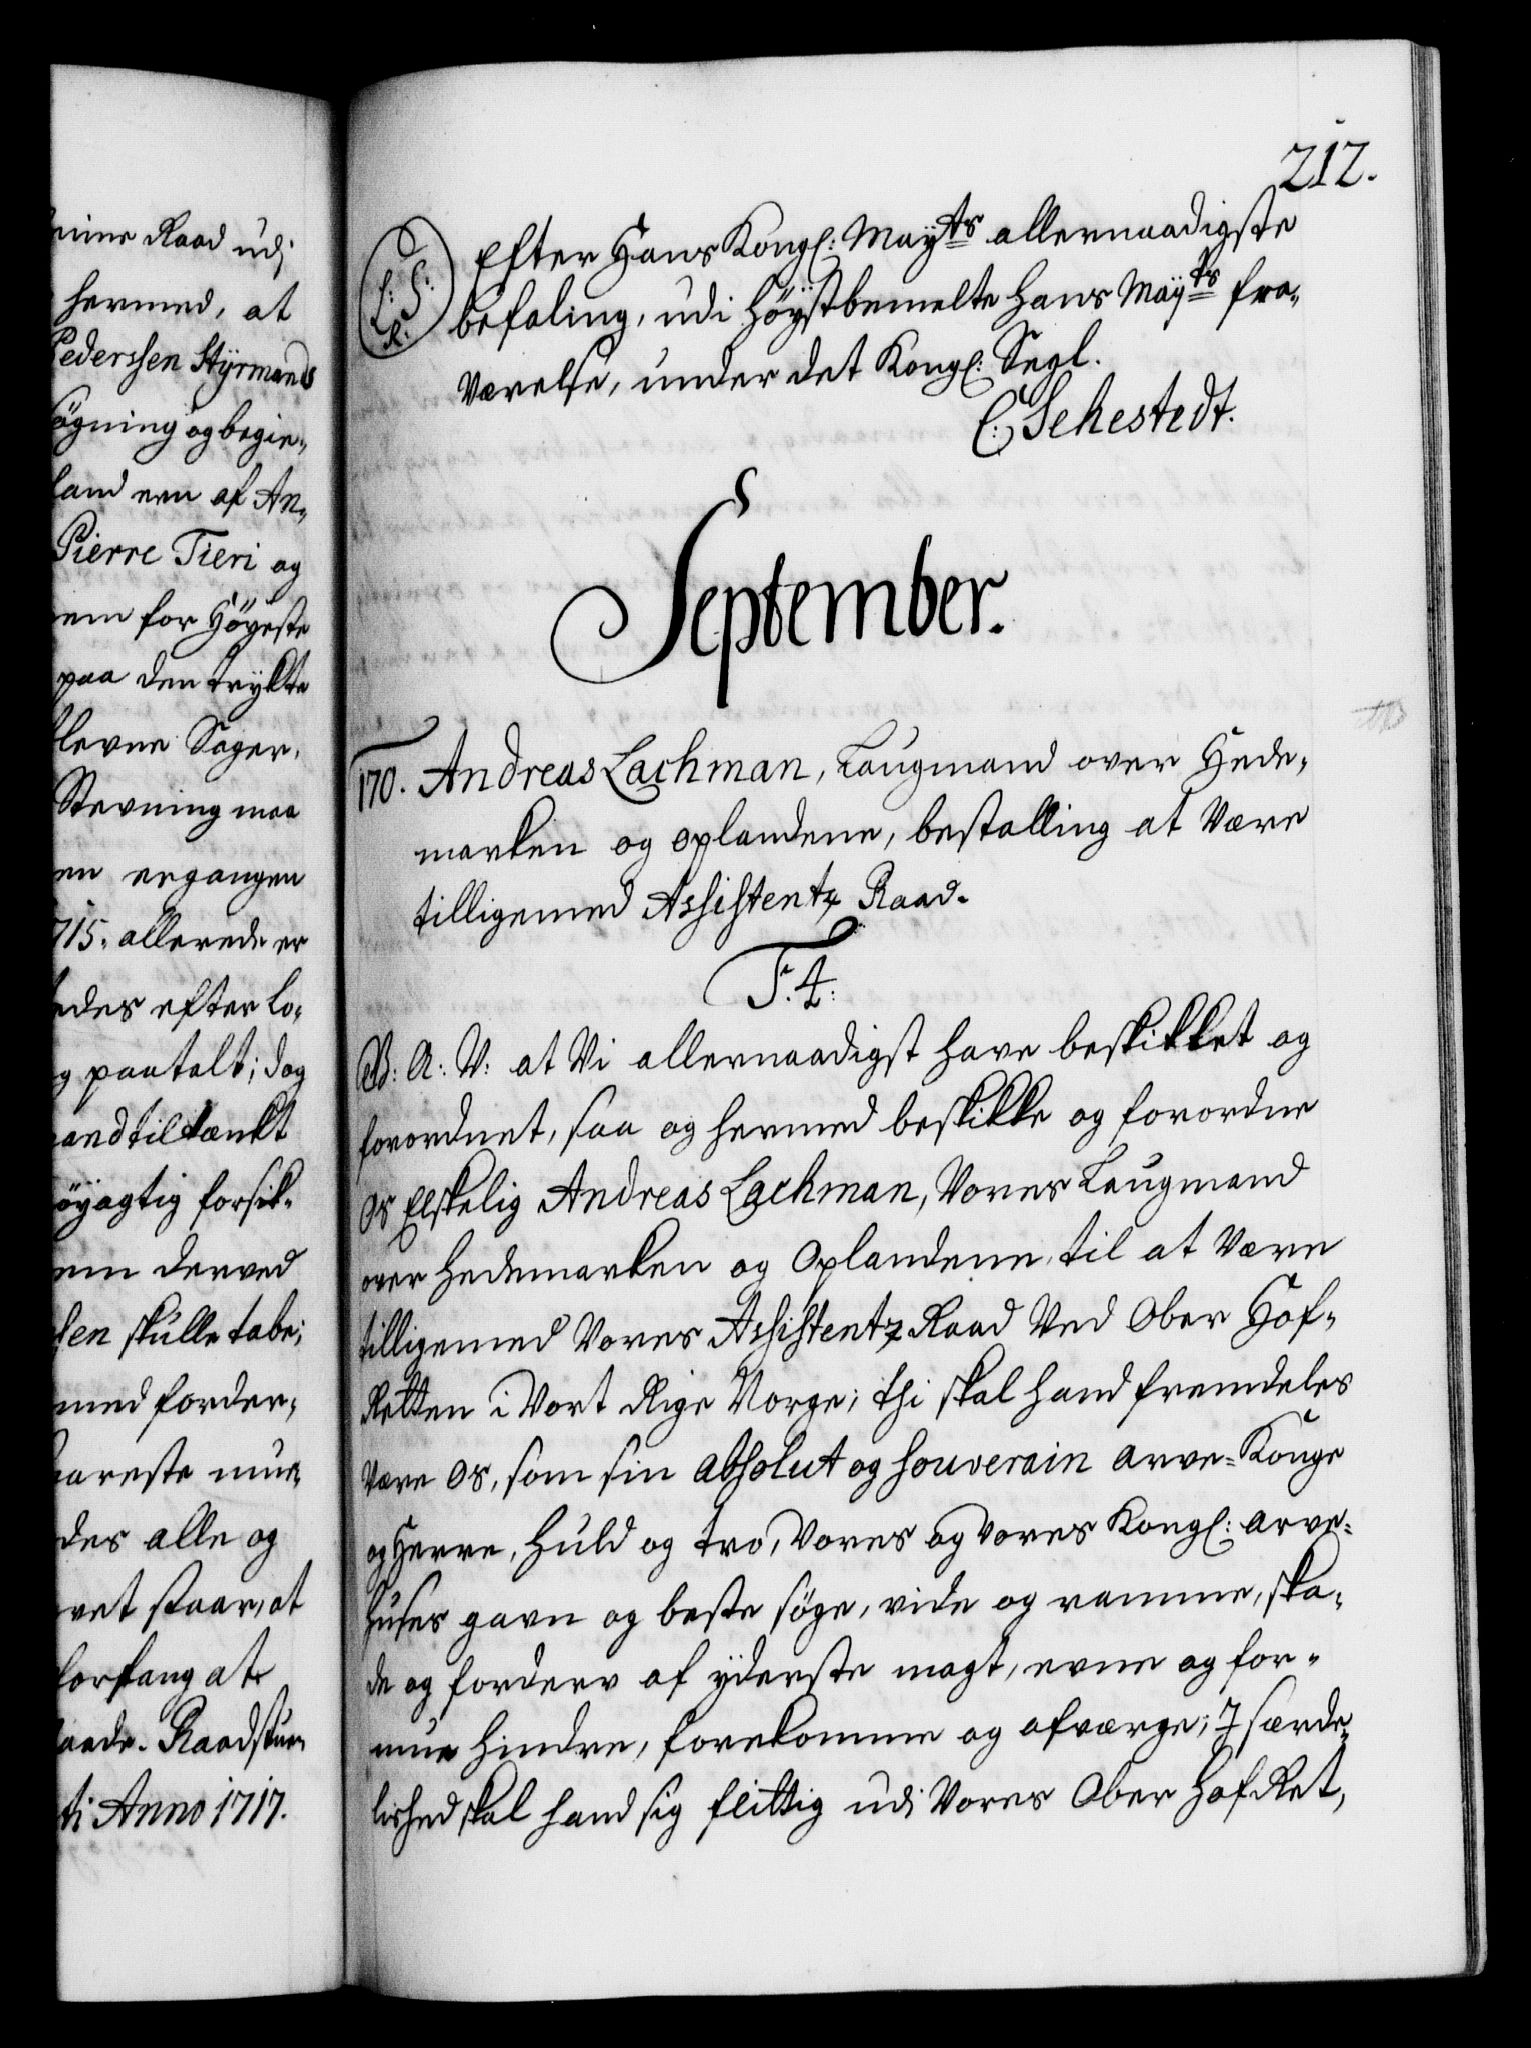 nine Raad udi
hermed, at
Pederssen Styrmands
søgning og begie-
land een af An-
Pierre Tieri og
dem for Høyeste
paa den trykte
blevne Sager,
Stevning maa
en ergangen
1715. allerede er
ledes efter Lo-
g paatalt; dog
and tiltænkt
øyagtig forsik-
em derved
sen skulle tabe;
med forder-
aareste mue-
des alle og
vet staar, at
forfang at
aade. Raadstuen
ti Anno 1717.
212.
L: S:
R:
Efter Hans Kongl: Mayts allernaadigste
befaling, udi høystbemelte hans Mayts fra-
Værelse, under det Kongl: Segl.
C: Sehestedt.
September.
170. Andreas Lachman, Laugmand over Hede-
marken og Oplandene, bestalling at Være
tilligemed Assistentz Raad.
F. 4:
G: A: V: at Vi allernaadigst have beskikket og
forordnet, saa og hermed beskikke og forordne
Os Elskelig Andreas Lachman, Vores Laugmand
over Hedemarken og Oplandene, til at Være
tilligemed Vores Assistentz Raad Ved Ober Hof-
Retten i Vort Rige Norge; thi skal hand fremdeles
Være Os, som sin absolut og souverain arve-Konge
og Herre, huld og tro, Vores og Vores Kongl: arve-
huses gavn og beste søge, vide og ramme, ska-
de og forderv af yderste magt, evne og for-
mue hindre, forekomme og afværge; J særde-
lished skal hand sig flittig udi Vores Ober Hof Ret,